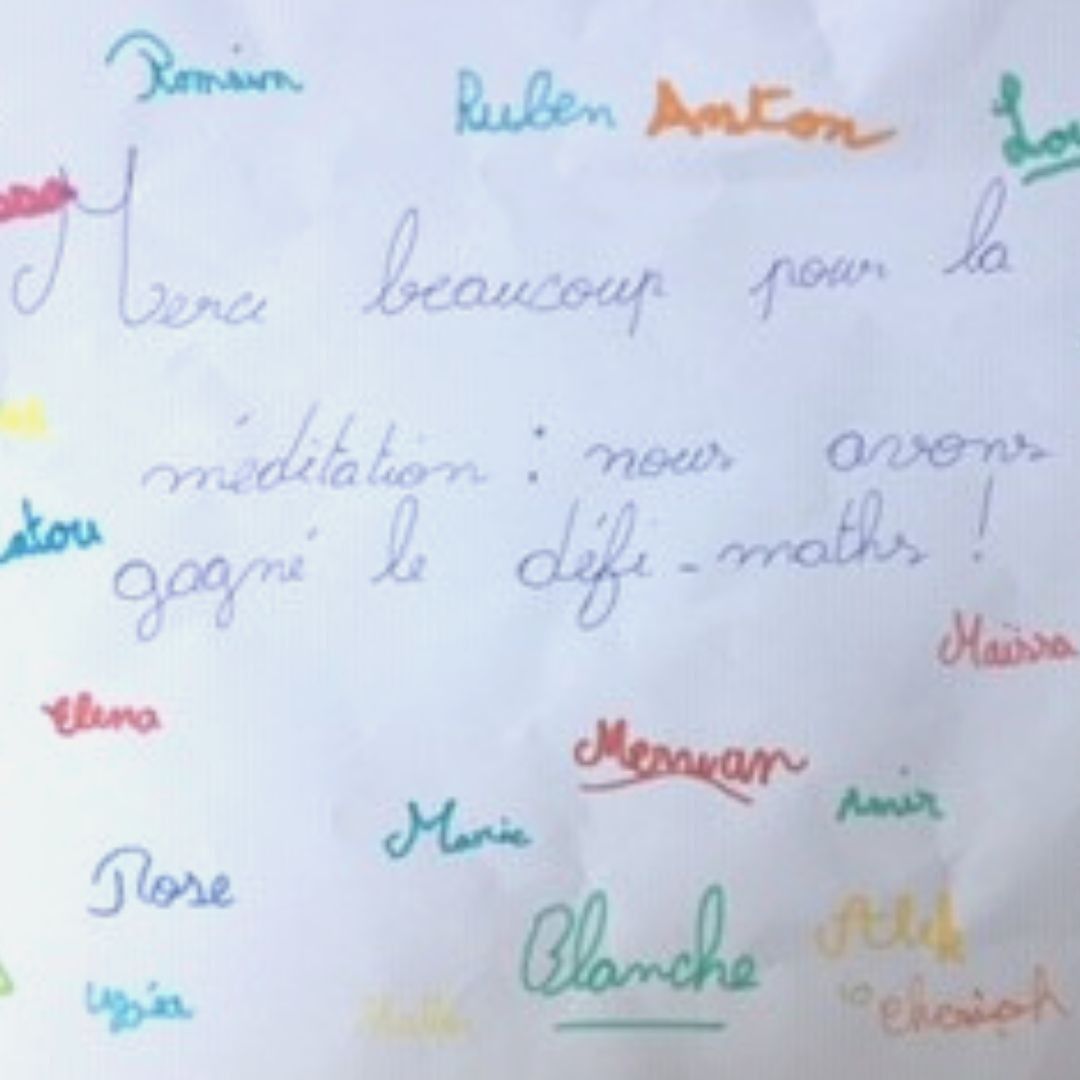 Romain
Ruben Anton
Merci beaucoup pour la
méditation : nous avons
gagné le défi-maths !
Maïssa
Elena
Merwan
Amir
Marie
Rose
Blanche